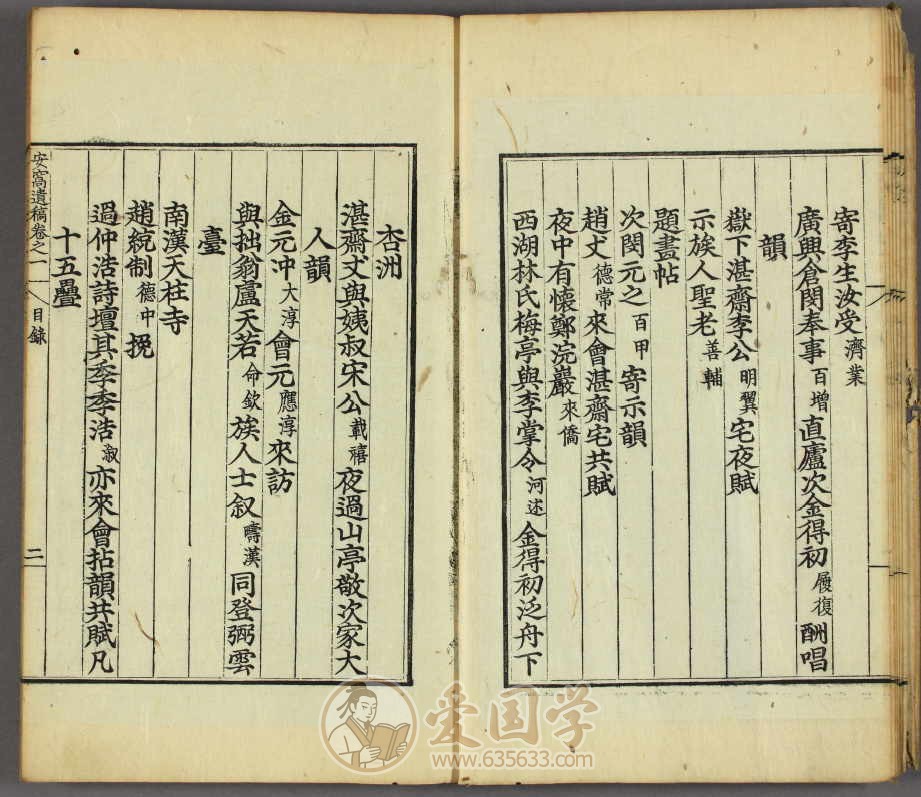 寄李生汝受濟業
廣興倉閔奉事百增直廬次金得初履復酬唱
韻
嶽下湛齋李公明翼宅夜賦
示族人聖老善輔
題畫帖
次閔元之百甲寄示韻
趙丈德常來會湛齋宅共賦
夜中有懷鄭浣巖來僑
西湖林氏梅亭與李掌令河述金得初泛舟下
杏洲
湛齋丈與姨叔宋公載禧夜過山亭敬次家大
人韻
金元冲大淳會元應淳來訪
與拙翁盧天若命欽族人士叙疇漢同登弼雲
臺
南漢天柱寺
趙統制德中挽
過仲浩詩壇其季季浩淑亦來會拈韻共賦凡
十五疊
安窩遺稿卷之一 目錄 二
爱国学
www.635633.com